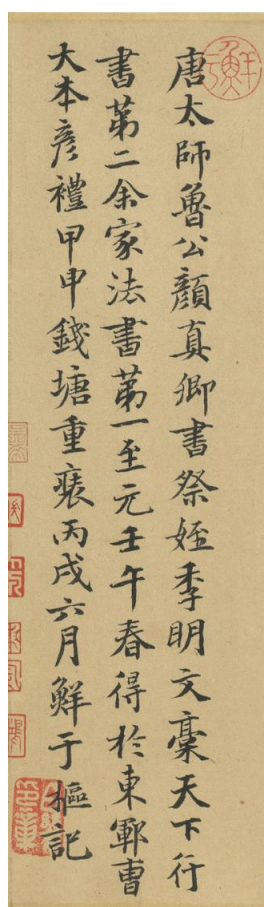 唐太師魯公顏真卿書祭姪季明文稾天下行
書第二余家法書第一至元壬午春得於東鄆曹
大本彥禮甲申錢塘重裝丙戌六月鮮于樞記